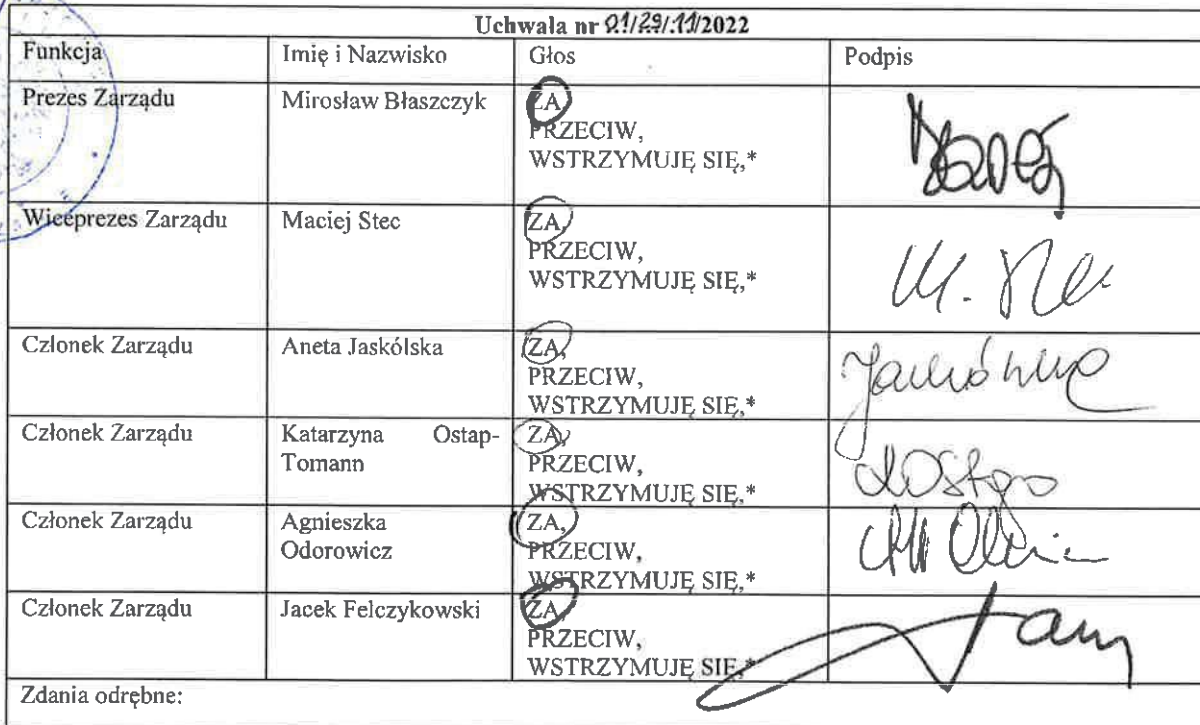 Uchwała nr 01/29/11/2022
Funkcja Imię i Nazwisko Głos Podpis
Prezes Zarządu Mirosław Błaszczyk ZA,
PRZECIW,
WSTRZYMUJĘ SIĘ,*
Wiceprezes Zarządu Maciej Stec ZA,
PRZECIW,
WSTRZYMUJĘ SIĘ,*
Członek Zarządu Aneta Jaskólska ZA,
PRZECIW,
WSTRZYMUJĘ SIĘ,*
Członek Zarządu Katarzyna Ostap- ZA,
Tomann PRZECIW,
WSTRZYMUJĘ SIĘ,*
Członek Zarządu Agnieszka ZA,
Odorowicz PRZECIW,
WSTRZYMUJĘ SIĘ,*
Członek Zarządu Jacek Felczykowski ZA,
PRZECIW,
WSTRZYMUJĘ SIĘ,*
Zdania odrębne: